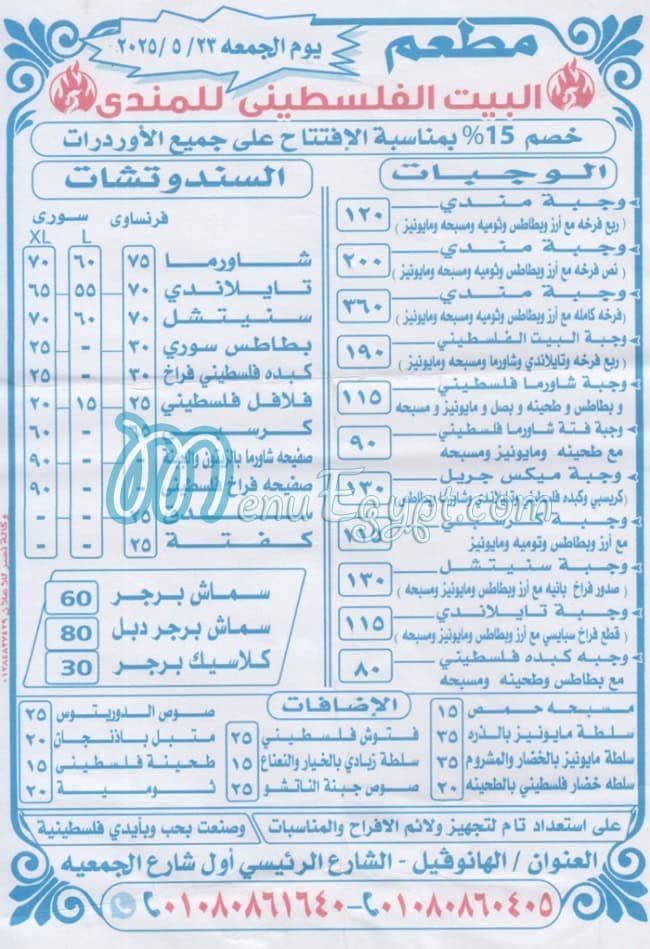 مطعم
يوم الجمعه ٢٣ / ٥ / ٢٠٢٥
البيت الفلسطيني للمندى
خصم 15% بمناسبة الإفتتاح على جميع الأوردرات
الوجبات
وجبة مندي ١٢٠
(ربع فرخه مع أرز وبطاطس وثوميه ومسبحه ومايونيز)
وجبة مندي ٢٠٠
(نص فرخه مع أرز وبطاطس وثوميه ومسبحه ومايونيز)
وجبة مندي ٣٦٠
(فرخه كامله مع أرز وبطاطس وثوميه ومسبحه ومايونيز)
وجبة البيت الفلسطيني ١٩٠
(ربع فرخه وتايلاندي وشاورما ومسبحه ومايونيز)
وجبة شاورما فلسطيني ١١٥
و بطاطس و طحينه و بصل و مايونيز و مسبحه
وجبة فتة شاورما فلسطيني ٩٠
مع طحينه ومايونيز ومسبحه
وجبة ميكس جريل ١٣٠
(كريسبي وكبده فلسطيني وتايلاندي وشاورما وبطاطس)
وجبة
مع أرز وبطاطس وثوميه ومايونيز
وجبة سنيتشل ١٣٠
(صدور فراخ بانيه مع أرز وبطاطس ومايونيز ومسبحه)
وجبة تايلاندي ١١٥
(قطع فراخ سبايسي مع أرز وبطاطس ومايونيز ومسبحه)
وجبه كبده فلسطيني ٨٠
مع بطاطس وطحينه ومايونيز
السندوتشات
فرنساوى سورى
L XL
شاورما ٧٥ ٦٠ ٧٠
تايلاندي ٧٠ ٥٥ ٦٥
سنيتشل ٧٠ ٦٠ ٧٠
بطاطس سوري ٣٠ - ٢٥
كبده فلسطيني فراخ ٣٠ - ٢٥
فلافل فلسطيني ٢٥ ١٥ ٢٠
- ٦٠
صفيحه شاورما بالزيتون - ٩٠
صفيحه فراخ فلسطيني - ٩٠
٢٥ - -
كفتة ٢٥ - -
سماش برجر 60
سماش برجر دبل 80
كلاسيك برجر 30
الإضافات
مسبحه حمص ١٥
سلطة مايونيز بالذره ٣٥
سلطة مايونيز بالخضار والمشروم ٣٥
سلطه خضار فلسطيني بالطحينه ٢٠
فتوش فلسطيني ٢٥
سلطة زبادي بالخيار والنعناع ١٥
صوص جبنة الناتشو ٢٥
صوص الدوريتوس ٢٥
متبل باذنجان ٢٠
طحينة فلسطينى ١٥
ثومية ٢٠
على استعداد تام لتجهيز ولائم الافراح والمناسبات وصنعت بحب وبأيدي فلسطينية
العنوان / الهانوفيل - الشارع الرئيسي أول شارع الجمعيه
٠١٠٨٠٨٦٠٤٠٥ - ٠١٠٨٠٨٦١٦٤٠
وكالة نصر للاعلان ٠١٢٨٤٨٣٧٤٢٩
MenuEgypt.com